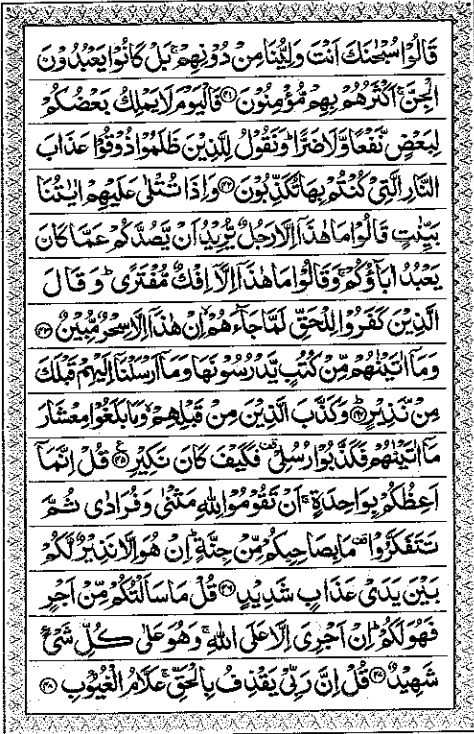 قَالُوۡا سُبۡحٰنَكَ اَنۡتَ وَلِيُّنَا مِنۡ دُوۡنِهِمۡ ۚ بَلۡ كَانُوۡا يَعۡبُدُوۡنَ
الۡجِنَّ ۚ اَكۡثَرُهُمۡ بِهِمۡ مُّؤۡمِنُوۡنَ ﴿۴۱﴾ فَالۡيَوۡمَ لَا يَمۡلِكُ بَعۡضُكُمۡ
لِبَعۡضٍ نَّفۡعًا وَّلَا ضَرًّا ؕ وَنَقُوۡلُ لِلَّذِيۡنَ ظَلَمُوۡا ذُوۡقُوۡا عَذَابَ
النَّارِ الَّتِىۡ كُنۡتُمۡ بِهَا تُكَذِّبُوۡنَ ﴿۴۲﴾ وَاِذَا تُتۡلٰى عَلَيۡهِمۡ اٰيٰتُنَا
بَيِّنٰتٍ قَالُوۡا مَا هٰذَاۤ اِلَّا رَجُلٌ يُّرِيۡدُ اَنۡ يَّصُدَّكُمۡ عَمَّا كَانَ
يَعۡبُدُ اٰبَآؤُكُمۡ ۚ وَقَالُوۡا مَا هٰذَاۤ اِلَّاۤ اِفۡكٌ مُّفۡتَرًى ؕ وَقَالَ
الَّذِيۡنَ كَفَرُوۡا لِلۡحَقِّ لَمَّا جَآءَهُمۡ ۙ اِنۡ هٰذَاۤ اِلَّا سِحۡرٌ مُّبِيۡنٌ ﴿۴۳﴾
وَمَاۤ اٰتَيۡنٰهُمۡ مِّنۡ كُتُبٍ يَّدۡرُسُوۡنَهَا وَمَاۤ اَرۡسَلۡنَاۤ اِلَيۡهِمۡ قَبۡلَكَ
مِنۡ نَّذِيۡرٍ ؕ ﴿۴۴﴾ وَكَذَّبَ الَّذِيۡنَ مِنۡ قَبۡلِهِمۡ ۙ وَمَا بَلَغُوۡا مِعۡشَارَ
مَاۤ اٰتَيۡنٰهُمۡ فَكَذَّبُوۡا رُسُلِىۡ ۚ فَكَيۡفَ كَانَ نَكِيۡرِ ﴿۴۵﴾ قُلۡ اِنَّمَاۤ
اَعِظُكُمۡ بِوَاحِدَةٍ ۚ اَنۡ تَقُوۡمُوۡا لِلّٰهِ مَثۡنٰى وَفُرَادٰى ثُمَّ
تَتَفَكَّرُوۡا ۚ مَا بِصَاحِبِكُمۡ مِّنۡ جِنَّةٍ ؕ اِنۡ هُوَ اِلَّا نَذِيۡرٌ لَّكُمۡ
بَيۡنَ يَدَىۡ عَذَابٍ شَدِيۡدٍ ﴿۴۶﴾ قُلۡ مَا سَاَلۡتُكُمۡ مِّنۡ اَجۡرٍ
فَهُوَ لَكُمۡ ؕ اِنۡ اَجۡرِىَ اِلَّا عَلَى اللّٰهِ ۚ وَهُوَ عَلٰى كُلِّ شَىۡءٍ
شَهِيۡدٌ ﴿۴۷﴾ قُلۡ اِنَّ رَبِّىۡ يَقۡذِفُ بِالۡحَقِّ ۚ عَلَّامُ الۡغُيُوۡبِ ﴿۴۸﴾